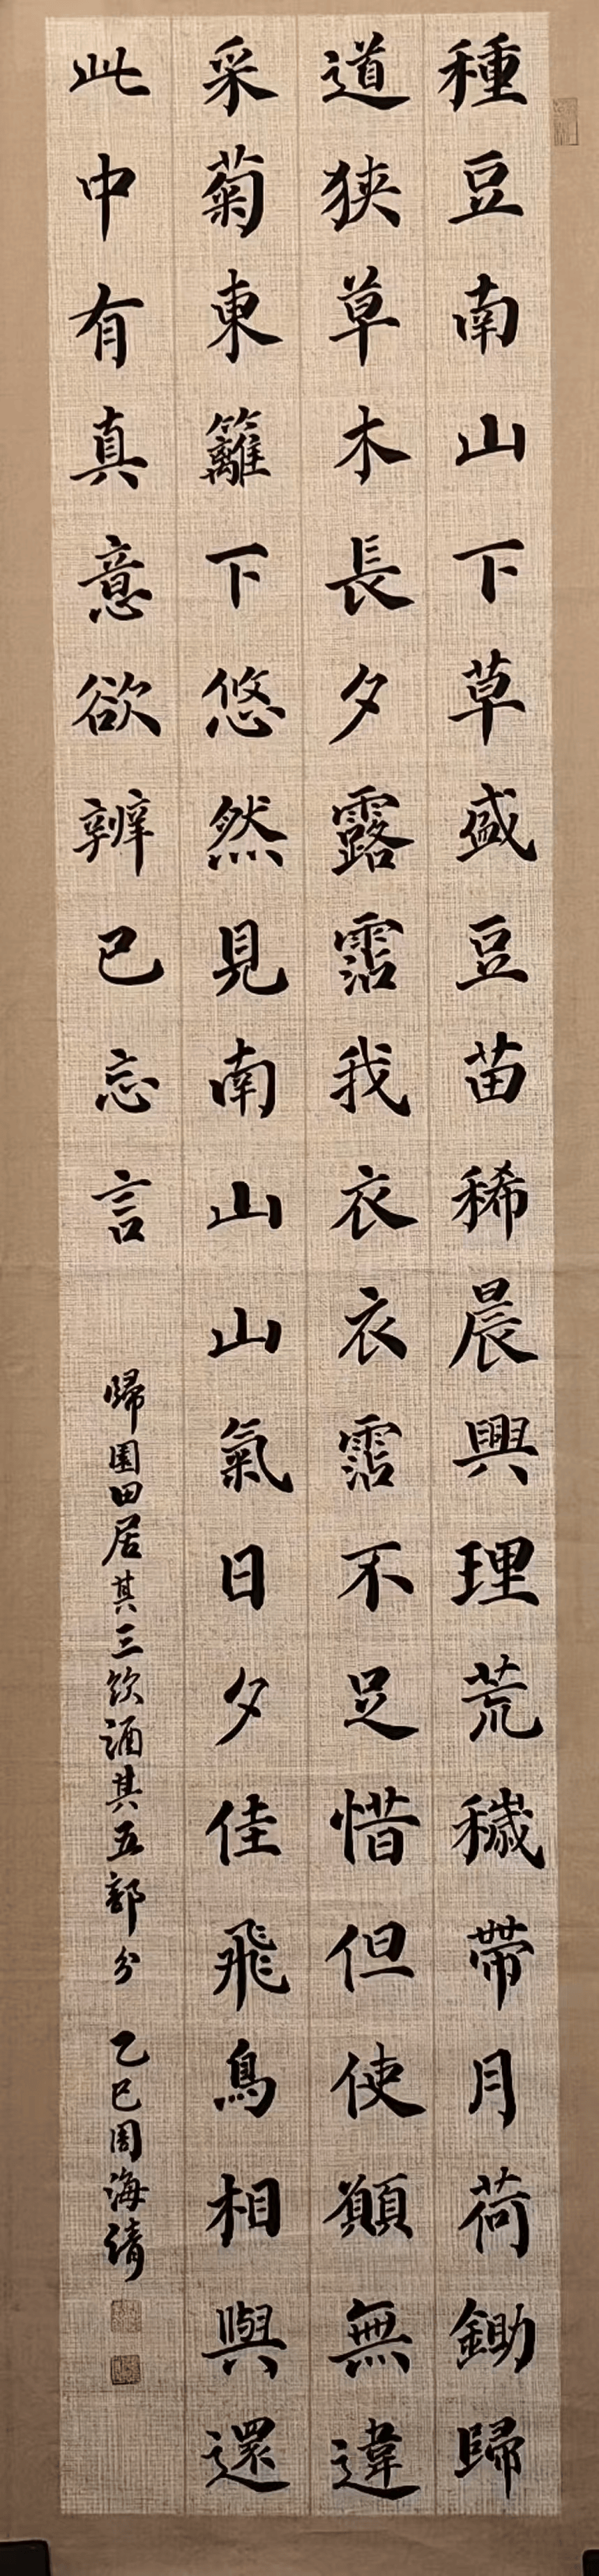 種豆南山下草盛豆苗稀晨興理荒穢帶月荷鋤歸
道狹草木長夕露霑我衣衣霑不足惜但使願無違
采菊東籬下悠然見南山山氣日夕佳飛鳥相與還
此中有真意欲辨已忘言
歸園田居其三飲酒其五部分 乙巳周海倩